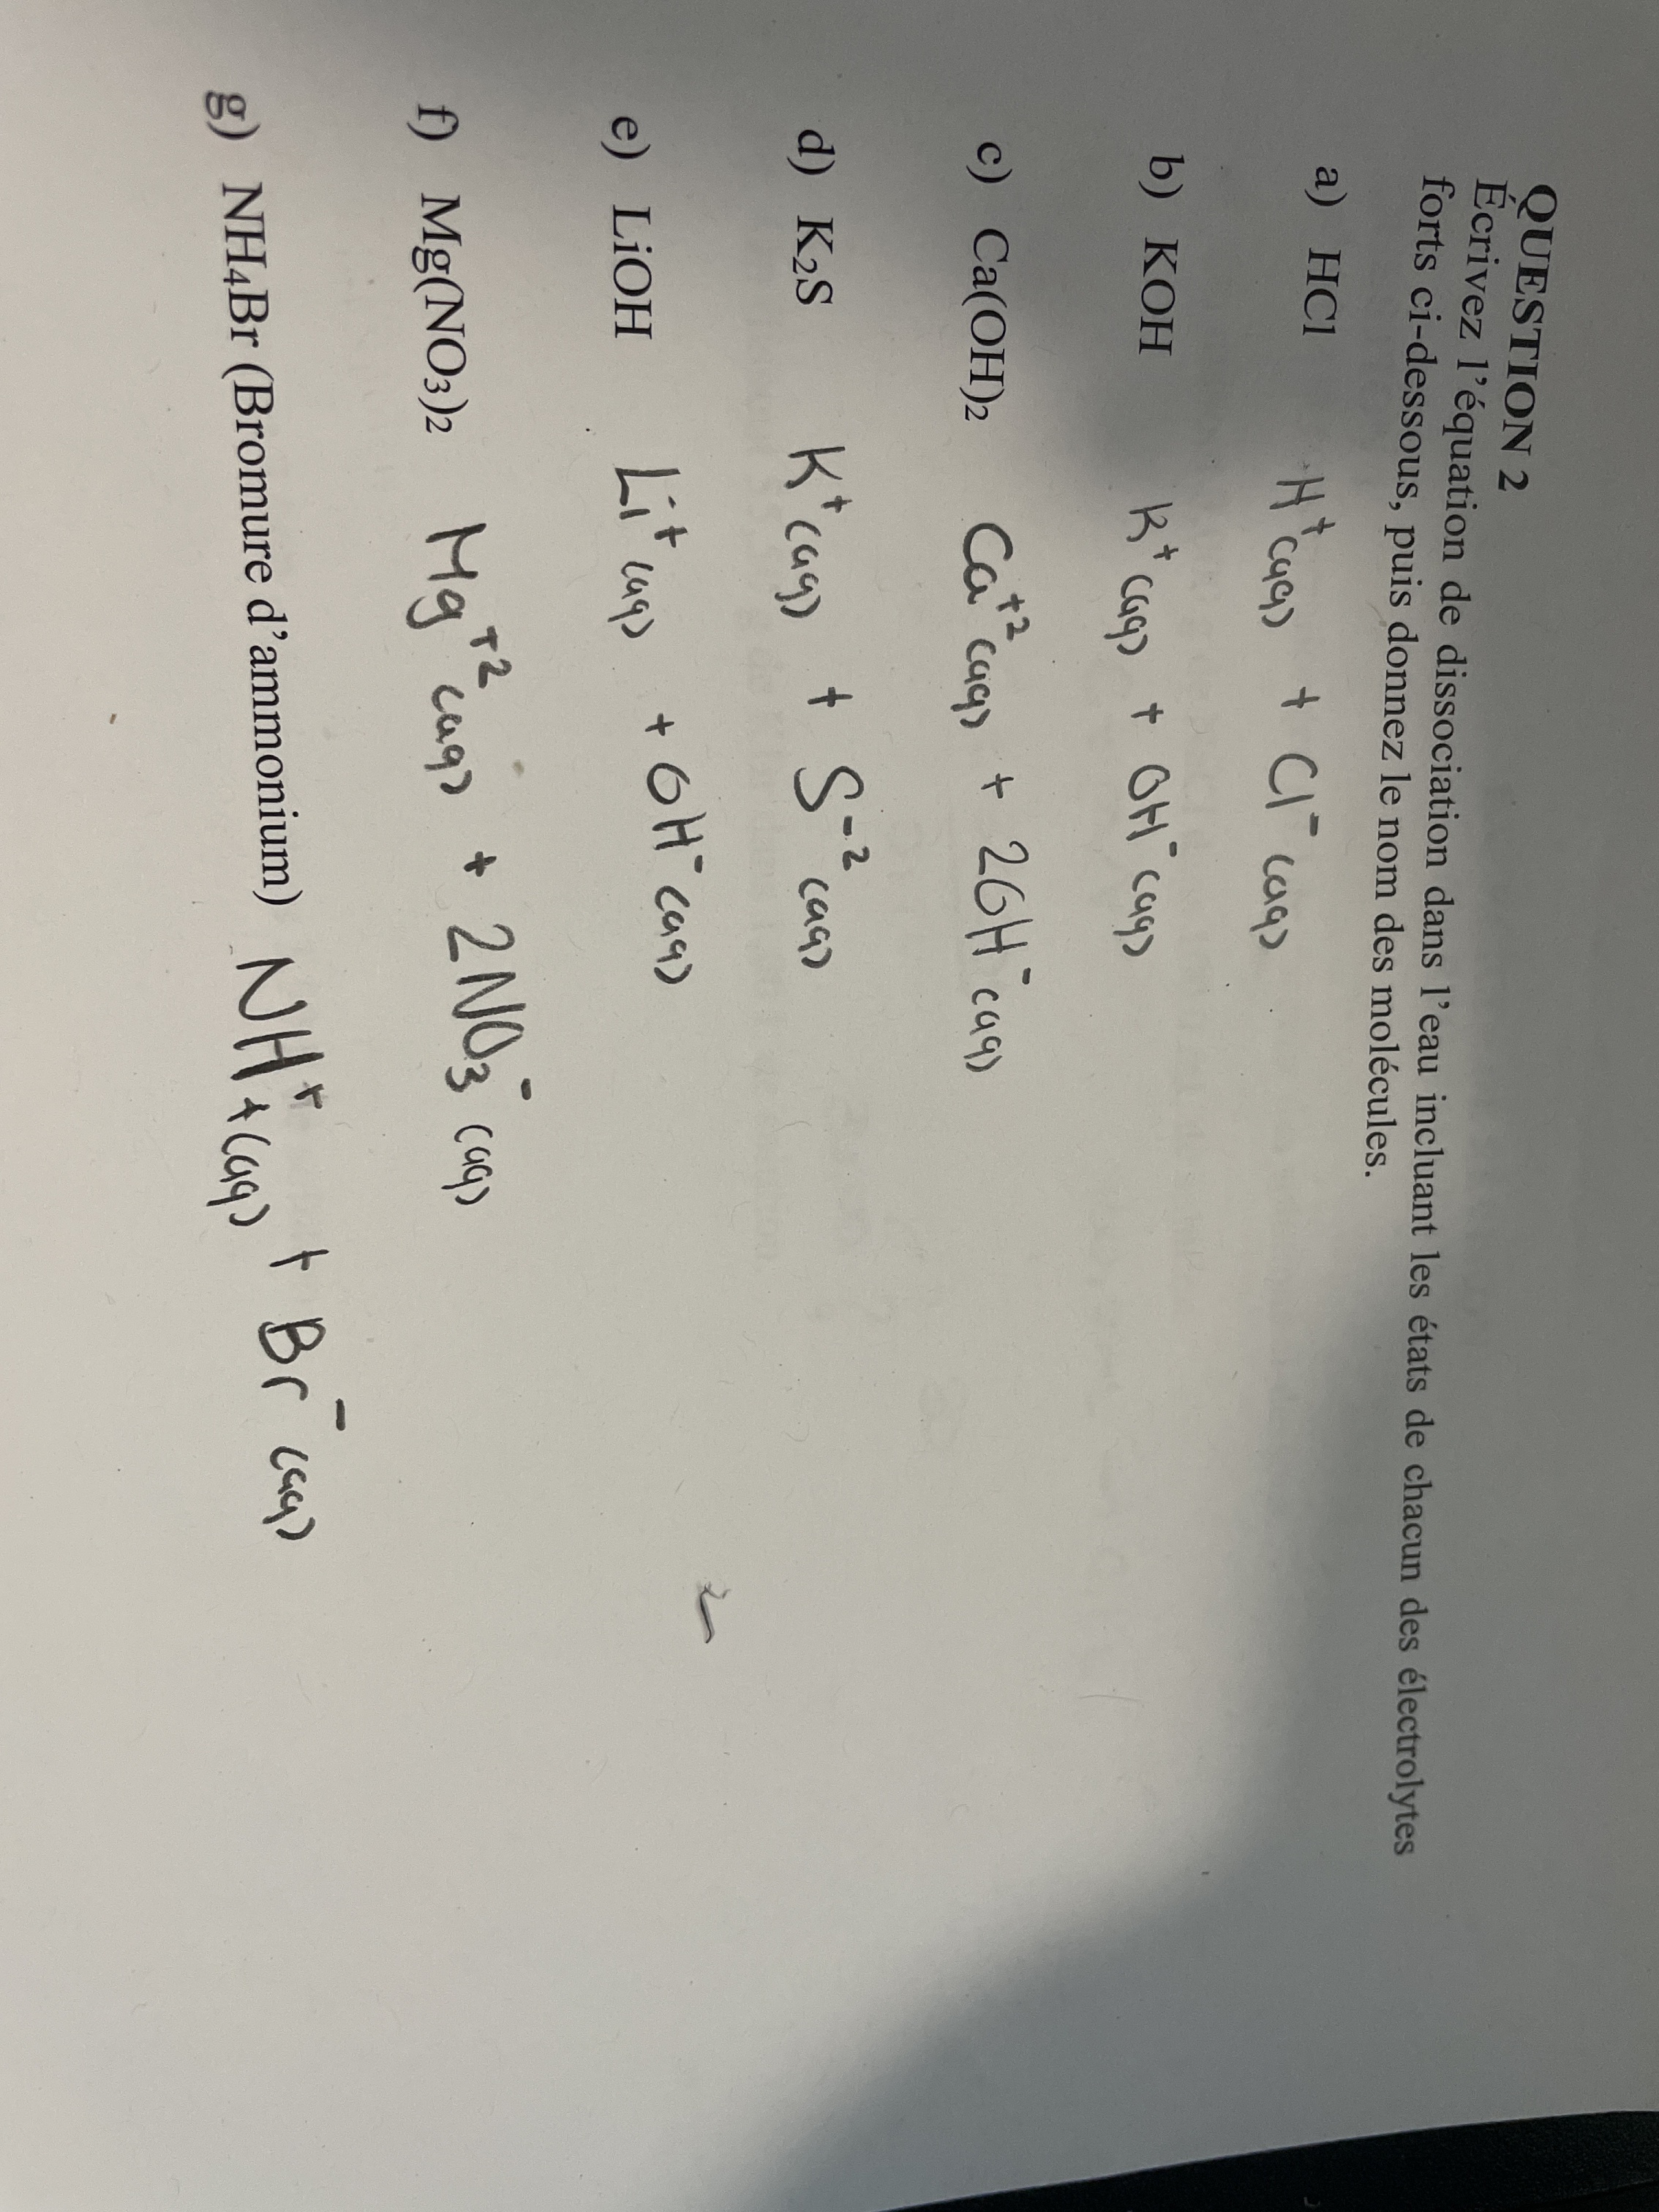 QUESTION 2
Écrivez l'équation de dissociation dans l'eau incluant les états de chacun des électrolytes
forts ci-dessous, puis donnez le nom des molécules.
a) HCl H⁺(aq) + Cl⁻(aq)
b) KOH K⁺(aq) + OH⁻(aq)
c) Ca(OH)₂ Ca⁺²(aq) + 2OH⁻(aq)
d) K₂S K⁺(aq) + S⁻²(aq)
e) LiOH Li⁺(aq) + OH⁻(aq)
f) Mg(NO₃)₂ Mg⁺²(aq) + 2NO₃⁻(aq)
g) NH₄Br (Bromure d'ammonium) NH⁺₄(aq) + Br⁻(aq)